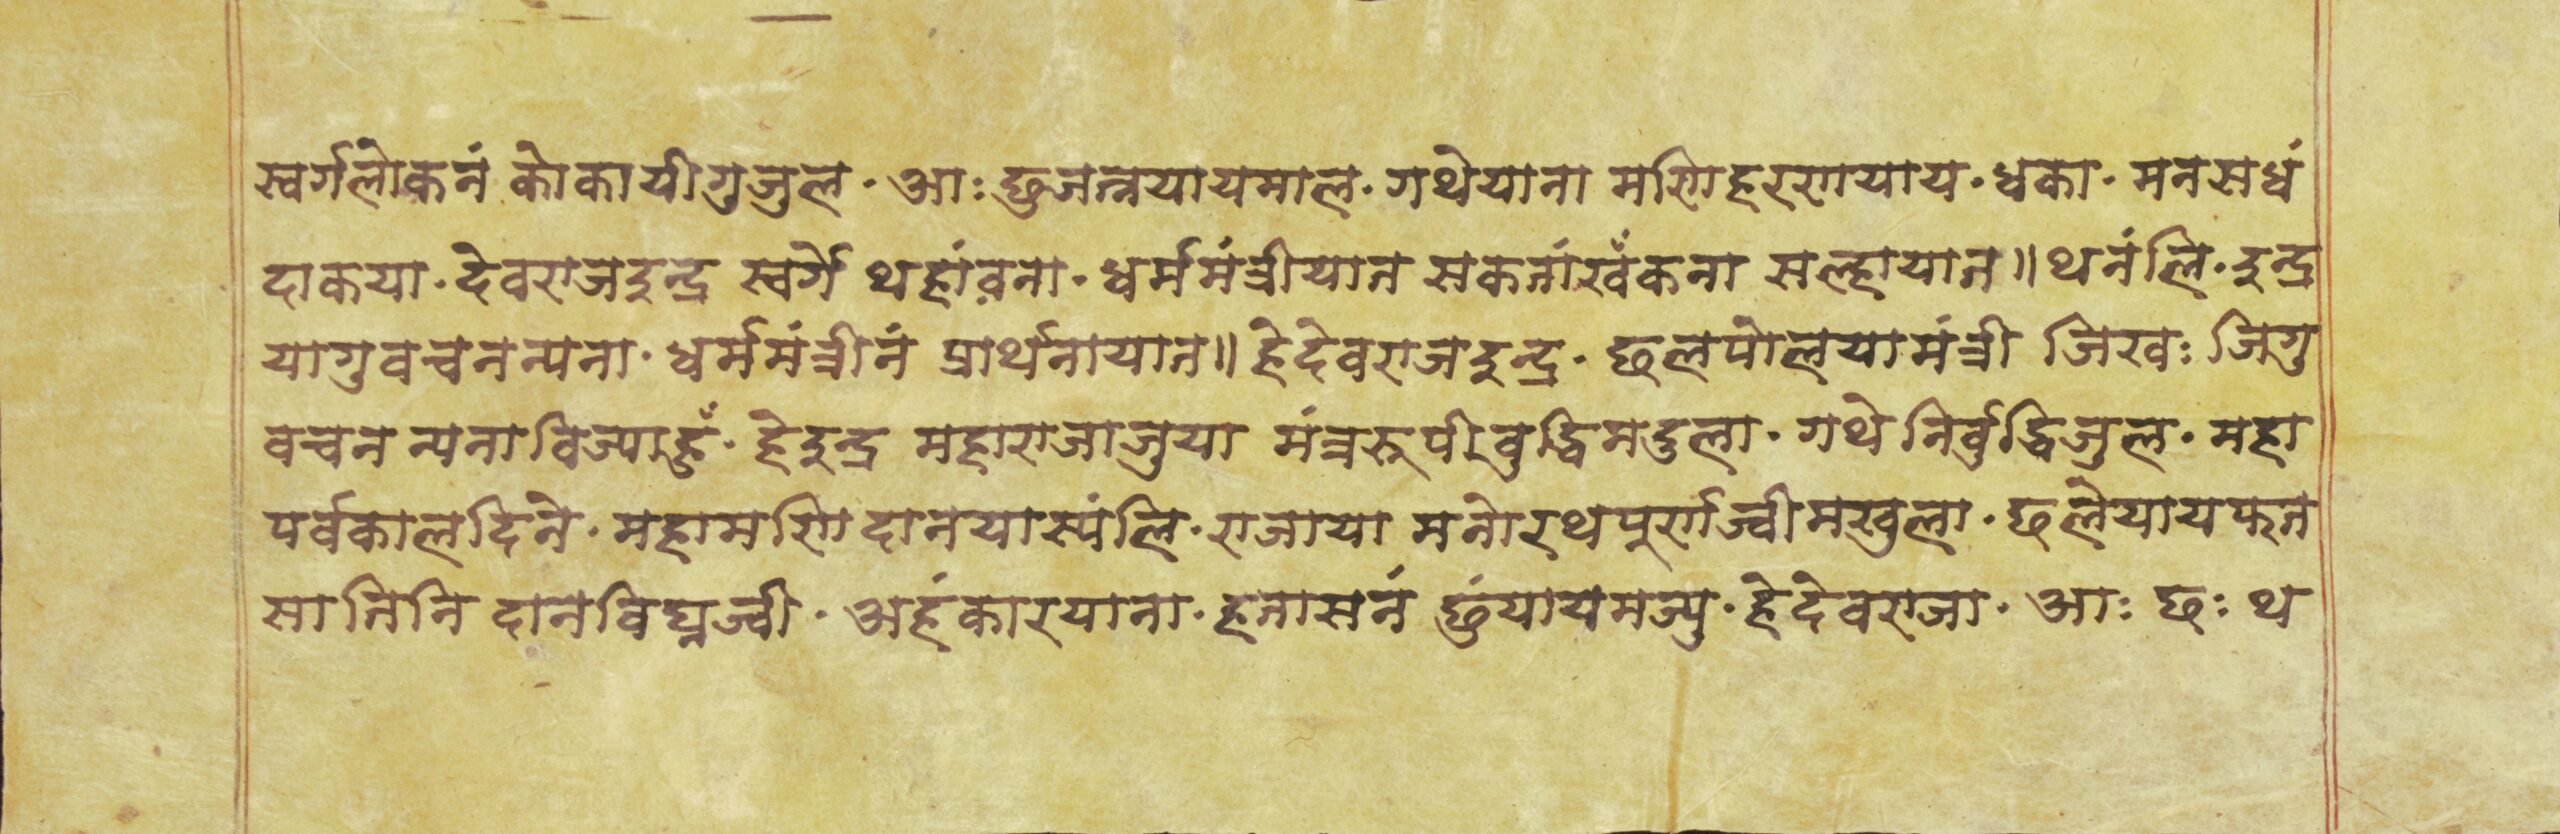 स्वर्गलोकनं कोकायीगुजुल · आः छुजत्नयायमाल · गथेयाना मणिहरणयाय · धका · मनसधं
दाकया · देवराजइन्द्र स्वर्गे थहांवना · धर्ममंत्रीयात सकतांखँकना सल्हायात॥ थनंलि · इन्द्र
यागुवचनन्यना · धर्ममंत्रीनं प्रार्थनायात॥ हेदेवराजइन्द्र · छलपोलयामंत्री जिखः जिगु
वचन न्यनाविज्याहुँ · हेइन्द्र महाराजाजुया मंत्ररूपीवुद्धिमदुला · गथे निर्वुद्धिजुल · महा
पर्वकालदिने · महामणि दानयास्यंलि · राजाया मनोरथपूर्णज्वीमखुला · छलेयायफत
सानिनि दानविघ्नज्वी · अहंकारयाना · हतासनं छुंयायमज्यु · हेदेवराजा · आः छः थ